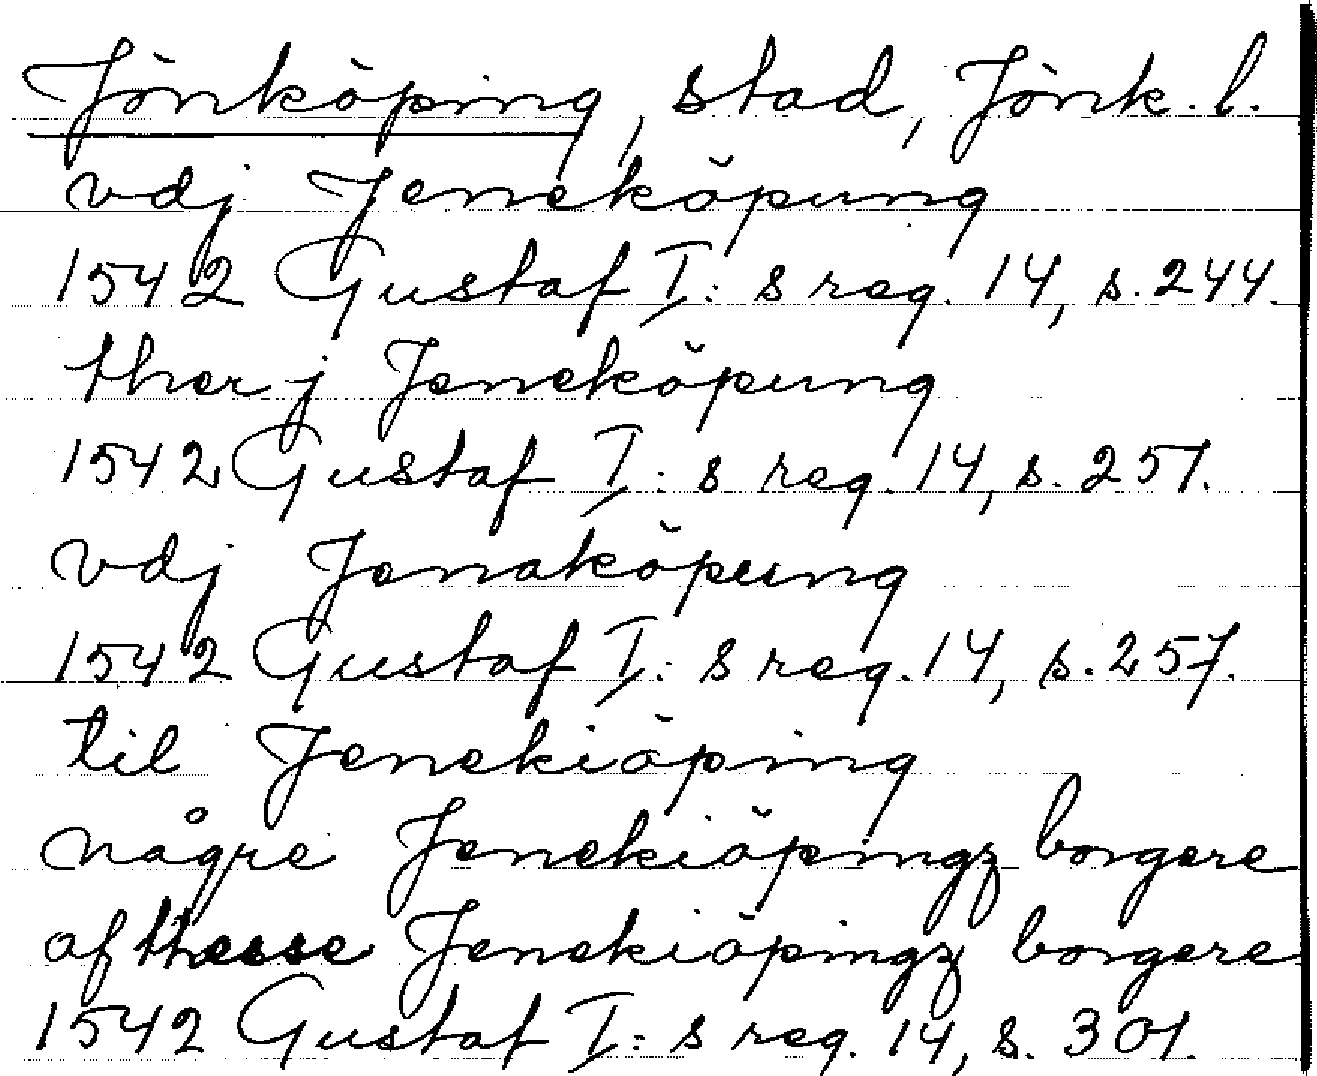 Jönköping, stad, Jönk. l.
vdj Jeneköpung
1542 Gustaf I: s reg. 14, s. 244.
ther j Jeneköpung
1542 Gustaf I: s reg. 14, s. 251.
vdj Jenaköpung
1542 Gustaf I: s reg. 14, s. 257.
til Jenekiöping
någre Jenekiöpingz borgere
af thesse Jenekiöpingz borgere
1542 Gustaf I: s reg. 14, s. 301.